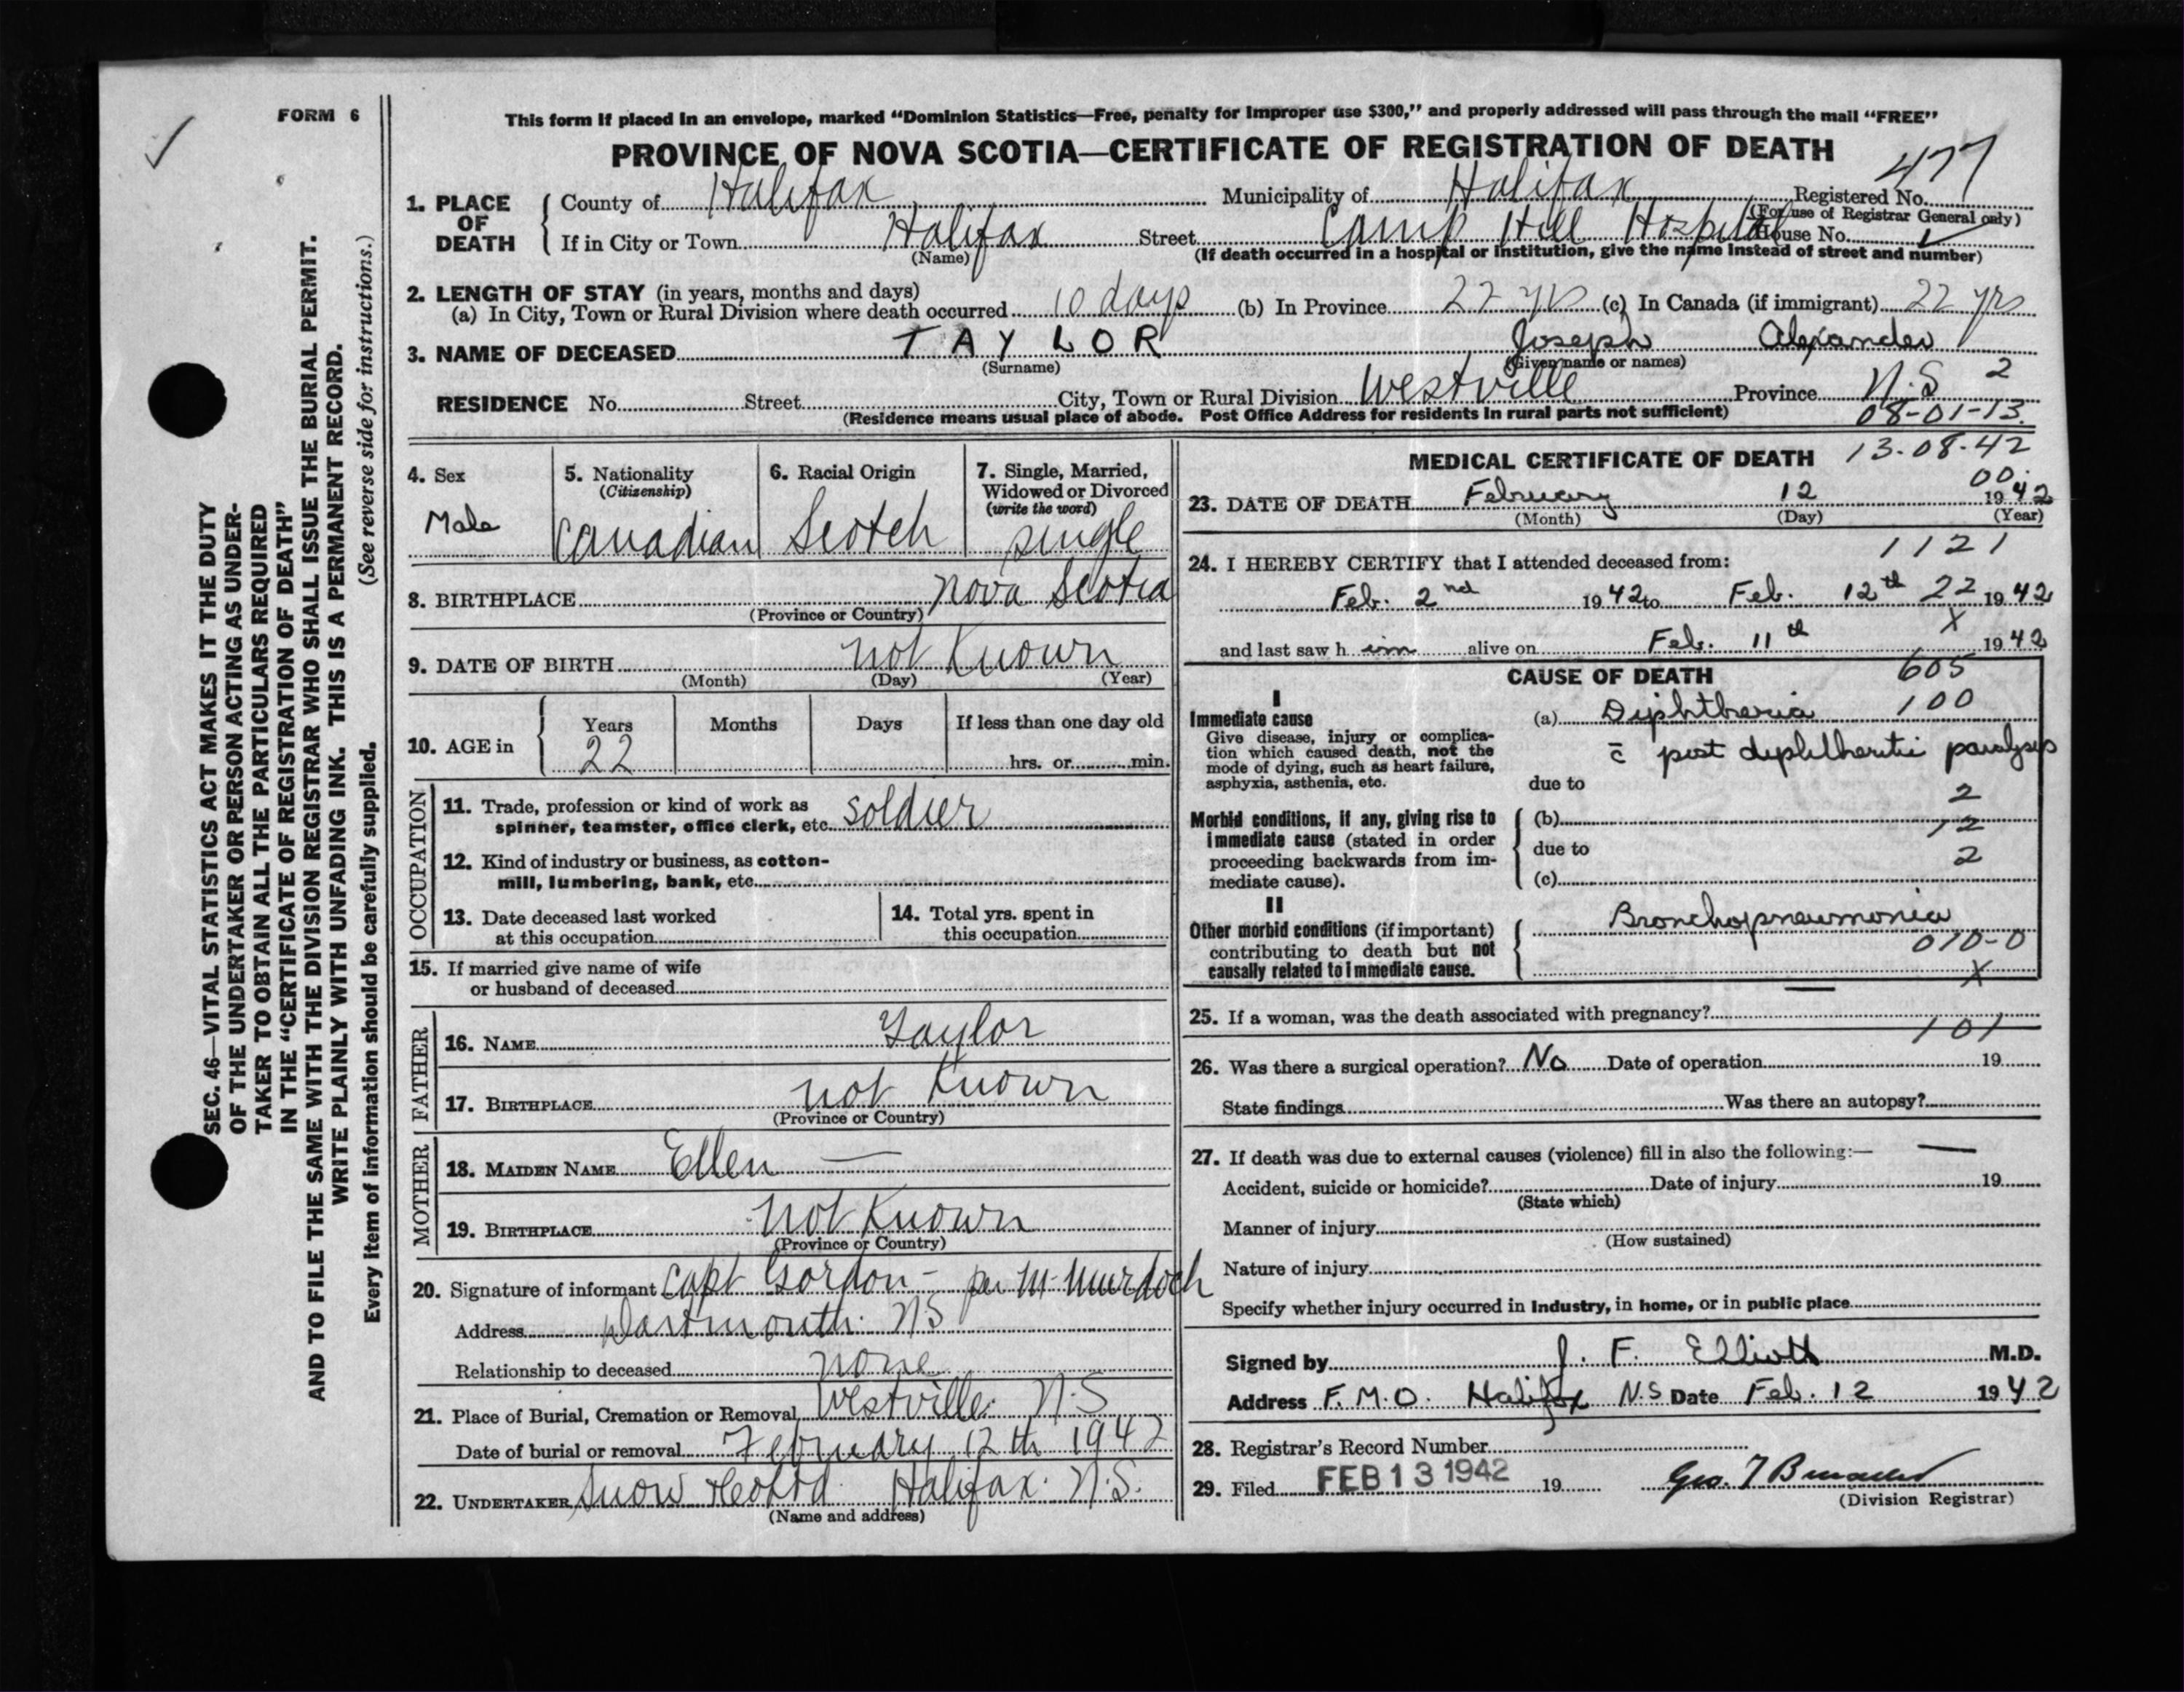 FORM 6
This form if placed in an envelope, marked “Dominion Statistics—Free, penalty for improper use $300,” and properly addressed will pass through the mail “FREE”
PROVINCE OF NOVA SCOTIA—CERTIFICATE OF REGISTRATION OF DEATH
477
1. PLACE OF DEATH
County of Halifax Municipality of Halifax Registered No.
(For use of Registrar General only)
If in City or Town Halifax Street Camp Hill Hospital House No.
(Name) (If death occurred in a hospital or institution, give the name instead of street and number)
2. LENGTH OF STAY (in years, months and days)
(a) In City, Town or Rural Division where death occurred 10 days (b) In Province 22 yrs (c) In Canada (if immigrant) 22 yrs
3. NAME OF DECEASED TAYLOR Joseph Alexander
(Surname) (Given name or names)
RESIDENCE No. Street City, Town or Rural Division Westville Province N.S 2
(Residence means usual place of abode. Post Office Address for residents in rural parts not sufficient) 08-01-13
SEC. 46—VITAL STATISTICS ACT MAKES IT THE DUTY
OF THE UNDERTAKER OR PERSON ACTING AS UNDER-
TAKER TO OBTAIN ALL THE PARTICULARS REQUIRED
IN THE “CERTIFICATE OF REGISTRATION OF DEATH”
AND TO FILE THE SAME WITH THE DIVISION REGISTRAR WHO SHALL ISSUE THE BURIAL PERMIT.
WRITE PLAINLY WITH UNFADING INK. THIS IS A PERMANENT RECORD.
Every item of information should be carefully supplied. (See reverse side for instructions.)
4. Sex
Male
5. Nationality
(Citizenship)
Canadian
6. Racial Origin
Scotch
7. Single, Married,
Widowed or Divorced
(write the word)
single
8. BIRTHPLACE Nova Scotia
(Province or Country)
9. DATE OF BIRTH not Known
(Month) (Day) (Year)
10. AGE in
Years Months Days If less than one day old
22 hrs. or min.
OCCUPATION
11. Trade, profession or kind of work as
spinner, teamster, office clerk, etc. soldier
12. Kind of industry or business, as cotton-
mill, lumbering, bank, etc.
13. Date deceased last worked
at this occupation
14. Total yrs. spent in
this occupation
15. If married give name of wife
or husband of deceased
FATHER
16. NAME Taylor
17. BIRTHPLACE not Known
(Province or Country)
MOTHER
18. MAIDEN NAME Ellen —
19. BIRTHPLACE not Known
(Province or Country)
20. Signature of informant Capt Gordon - per M- Murdoch
Address Dartmouth. NS
Relationship to deceased none
21. Place of Burial, Cremation or Removal Westville. N.S
Date of burial or removal February 12th 1942
22. UNDERTAKER Snow & Co Ltd. Halifax. N.S.
(Name and address)
MEDICAL CERTIFICATE OF DEATH 13-08-42
00
23. DATE OF DEATH February 12 1942
(Month) (Day) (Year)
1121
24. I HEREBY CERTIFY that I attended deceased from:
Feb. 2nd 1942 to Feb. 12th 22 1942
X
and last saw him alive on Feb. 11th 1942
CAUSE OF DEATH 605
I
Immediate cause
Give disease, injury or complica-
tion which caused death, not the
mode of dying, such as heart failure,
asphyxia, asthenia, etc.
(a) Diphtheria 100
c̄ post diphtheritic paralysis
due to
2
Morbid conditions, if any, giving rise to
immediate cause (stated in order
proceeding backwards from im-
mediate cause).
(b)
12
due to
2
(c)
II
Other morbid conditions (if important)
contributing to death but not
causally related to immediate cause.
Bronchopneumonia
010-0
X
25. If a woman, was the death associated with pregnancy? —
101
26. Was there a surgical operation? No Date of operation 19
State findings Was there an autopsy?
27. If death was due to external causes (violence) fill in also the following:— —
Accident, suicide or homicide? Date of injury 19
(State which)
Manner of injury
(How sustained)
Nature of injury
Specify whether injury occurred in industry, in home, or in public place
Signed by J. F. Elliott M.D.
Address F.M.O. Halifax N.S Date Feb. 12 1942
28. Registrar's Record Number
29. Filed FEB 13 1942 19 Geo. T
(Division Registrar)